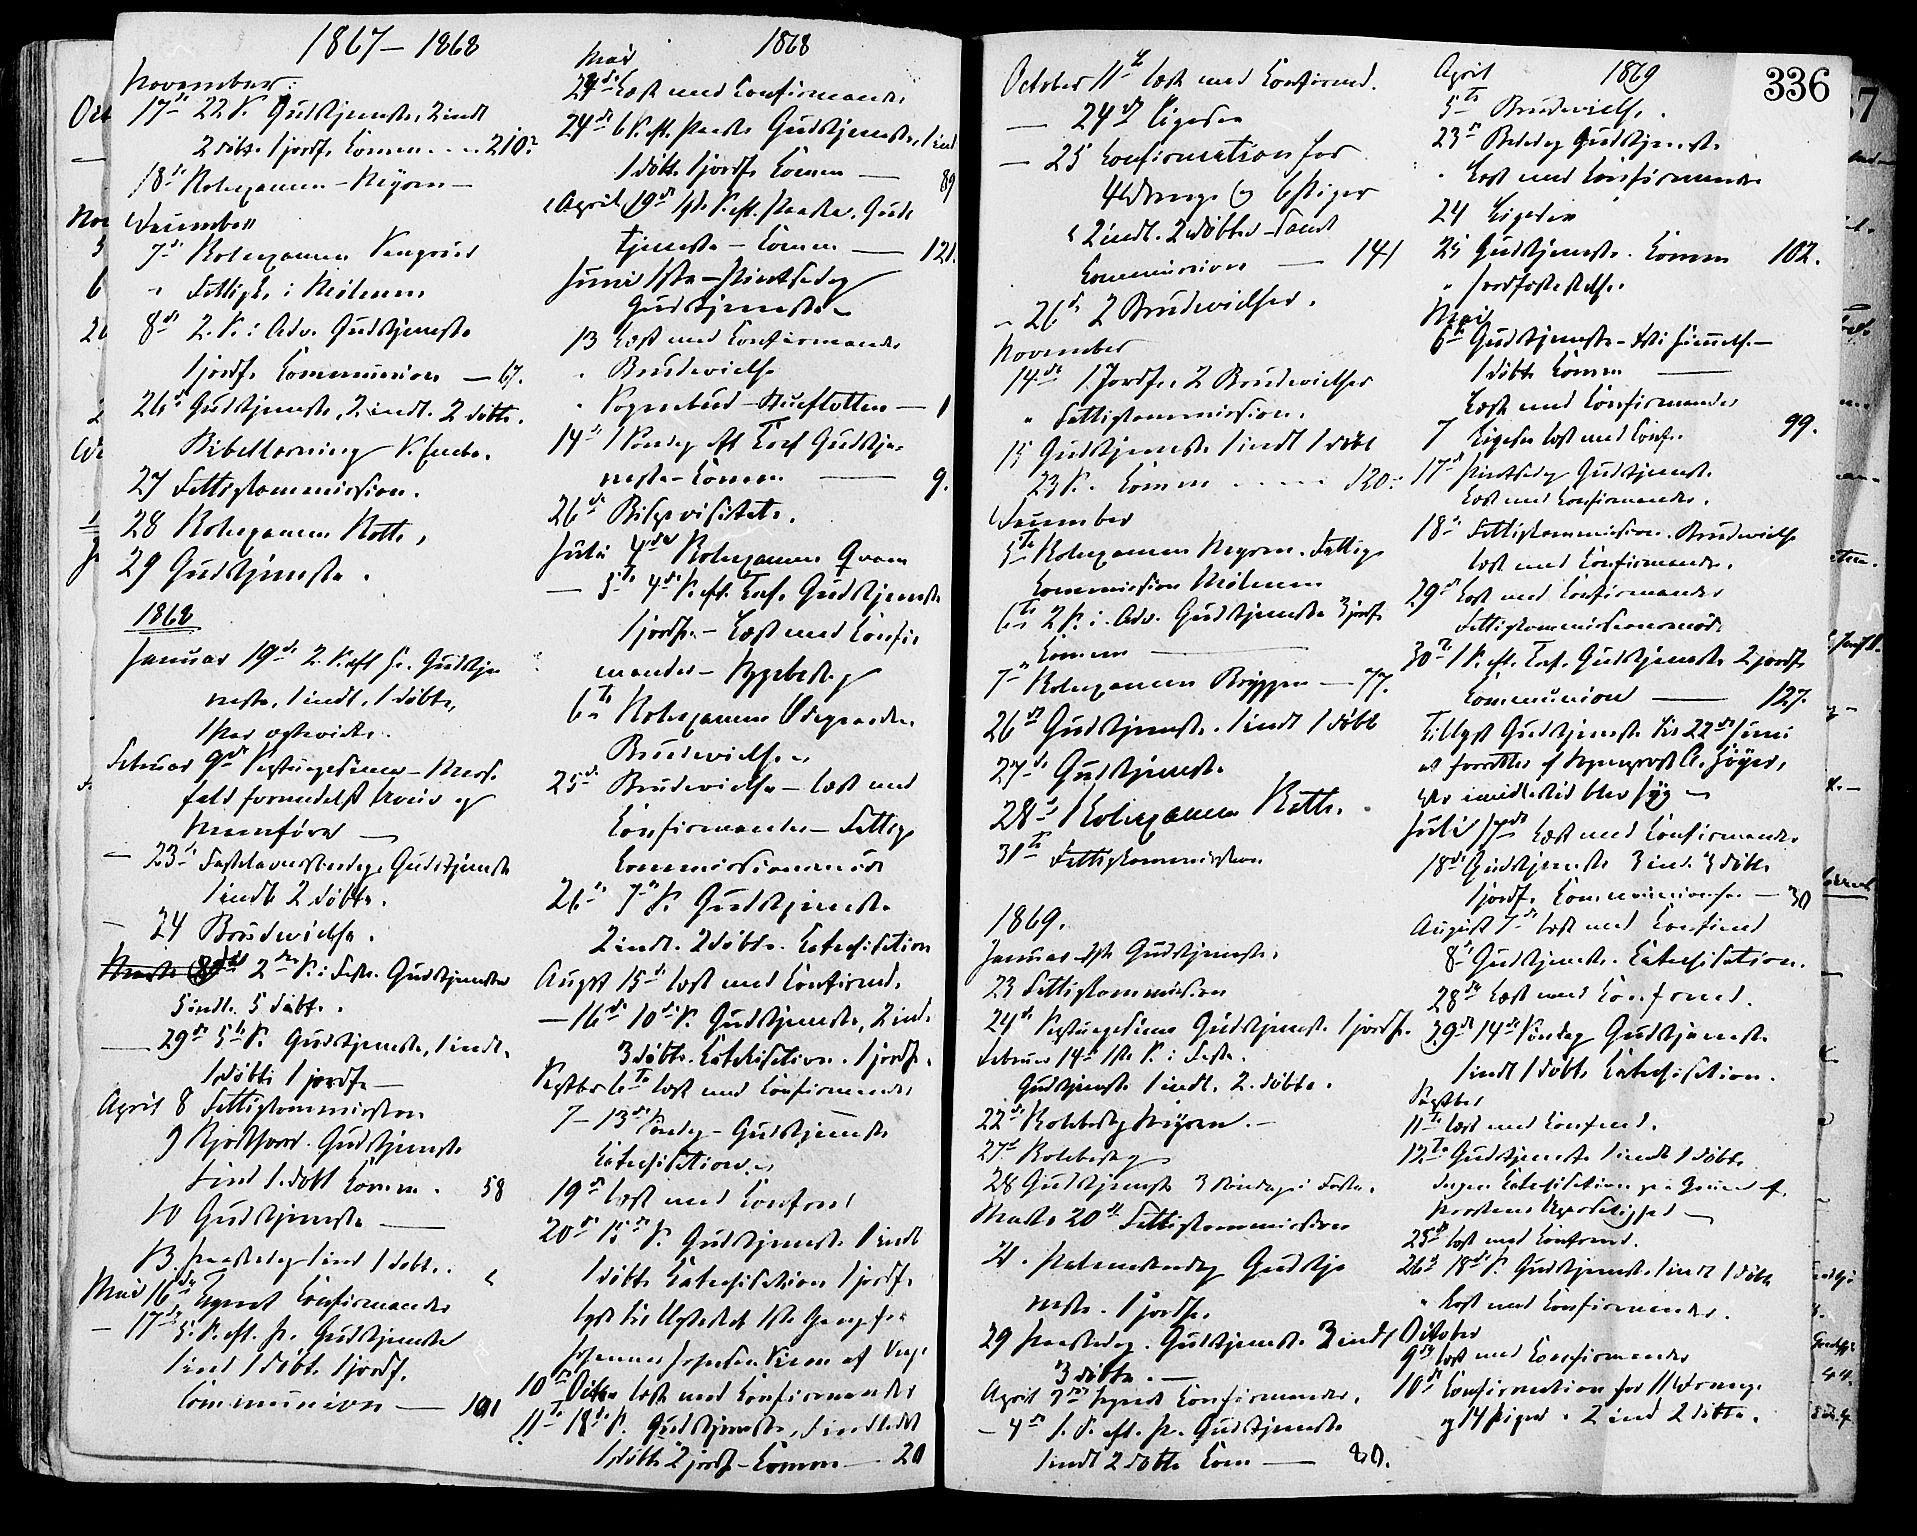 1867-1868
November:
17de 22 S. Gudstjeneste, 2 indl
2 döbte 1 jordf. Comm. - - 210?
18de Skoleexamen - Myren -
December
7de Skoleexamen
" Fattigk. i Mölmen
8de 2. S. i Adv. Gudstjeneste
1 jordf. Communion - 67.
26de Gudstjeneste, 2 indl. 2 döbte.
Bibellæsning
27 Fattigkommission.
28 Skoleexamen Kolte,
29 Gudstjeneste.
1868
Januar 19de 2. S. eft H. Gudstje
neste, 1 indl. 1 döbte,
1 Par ægteviede.
Februar 9de Septuagesima - Mess
fald formedelst Uveir og
Menneföre -
- 23de Fastelavnssöndag, Gudstjeneste
1 indl 2 döbte.
- 24 Brudevielse.
Marts 8de 2den S. i Faste. Gudstjeneste
5 indl. 5 döbte.
- 29de 5te S. Gudstjeneste, 1 indl.
1 döbte 1 jordf. -
April 8 Fattigkommission
9 Skjærthorsd. Gudstjeneste
1 ind 1. döbt Comm. 58
10 Gudstjeneste -
13. Paaskedag 1 ind 1 döbte.
Mai 16de Confirmander
- 17de 5. S. eft. P. Gudstjeneste
1 ind 1 döbte 1 jordf.
Communion - 101
1868
Mai
Læst med Confirmander
24de 6 S. eft. Paaske Gudstjeneste, 1 ind
1 döbte 1 jordf. Comm - 89
April 19de S. eft. Paaske. Guds
tjeneste - Comm - 121.
Juni 1ste - Pintsedag
Gudstjeneste
13 Læst med Confirmander
" Brudevielse
" Sognebud - - 1
14de 1 Söndag eft Tref Gudstje-
neste - Comm. - 9.
26de Bispevisitats.
Juli 4de Skoleexamen Qvam
- 5te 4de S. eft. Tref. Gudstjeneste
1 jordf. - Læst med Confir
mander - Sygebesög
6te Skoleexamen Ödegaarden.
Brudevielse
25de Brudevielse - læst med
Confirmander - Fattig
kommissionsmöde
26de 7de S. Gudstjeneste
2 indl. 2 döbte. Catechisation
August 15de læst med Confirmd.
- 16de 10de S. Gudstjeneste, 2 ind.
3 döbte. Catechisation. 1 jordf.
Septber 6te læst med Confirmander
7 - 13de Söndag - Gudstjeneste
Catechisation.
19de læst med Confirmd
20de 15de S. Gudstjeneste 1 indl
1 döbte Catechisation 1 jordf.
lyst til Ægteskab 1ste Gang for
Johannes Johnsen
10de Octbr læst med Confirmander
11te 18de S. Gudstjeneste, 1 indledet
1 döbte 2 jordf - Comm - 20
336
October 11te læst med Confirmd.
- 24de ligesaa
- 25 Confirmation for
4 drenge og 6 piger
2 indl. 2 döbte - samt
Communion - 141
- 26de 2 Brudevielser.
November
14de 1 Jordf. 2 Brudevielser
" Fattigkommission.
15 Gudstjeneste 1 indl 1 döbt
23 S. Comm - - - - 120
December
5te Skoleexamen Myren. Fattig
kommission Mölmen
6te 2 S. i. Adv. Gudstjeneste 3 jordf
Comm -
7de Skoleexamen Bryggen - 77.
26de Gudstjeneste. 1 indl 1 döbt
27de Gudstjeneste
28de Skoleexamen Kolte.
31te Fattigkommission
1869.
Januar 1ste Gudstjeneste.
23 Fattigkommission
24de Septuagesima Gudstjeneste 1 jordf.
Februar 14de 1ste S. i Faste.
Gudstjeneste 1 indl. 2. döbte.
22de Skolebesög Myren. -
27de Skolebesög
28 Gudstjeneste 3 Söndag i Faste.
Marts 20de Fattigkommission
21. Palmesöndag Gudstje
neste. 1 jordf.
29 Paaskedag. Gudstjeneste 3 indl
3 döbte. -
April 3de Confirmander.
- 4de 1. S. eft. P. Gudstjeneste
1 indl 2 döbte Com - 80.
1869
April
5te Brudevielse.
23de Bededag Gudstjeneste
" Læst med Confirmander
24 Ligesaa
25 Gudstjeneste. Comm 102.
" Jordfæstelse.
Mai
6te Gudstjeneste - Xsti Himmelf. -
1 döbt Comm -
Læst med Confirmander
7 Ligesaa læst med Conf. 99.
17de Pintsedag Gudstjeneste
Læst med Confirmander.
18de Fattigkommission. Brudevielse
læst med Confirmander.
29de Læst med Confirmander
Fattigkommissionsmöde
30te 1 S. eft. Tref. Gudstjeneste 2 jordf
Communion - 127.
Tillyst Gudstjeneste til 22de Juni
at forrettes af Sognepræst C. Höyer,
der imidlertid blev syg -
Juli 17de Læst med Confirmander
18de Gudstjeneste 3 ind. 3 döbte
1 jordf. Communion - 30
August 7de læst med Confirmd
8de Gudstjeneste. Catechisation.
28de læst med Confirmd.
29de 14de Söndag Gudstjeneste
1 indl 1 döbte Catechisation.
Septbr
11te læst med Confirmd.
12te Gudstjeneste 1 indl 1 döbte
Ingen Catechisation paa Grund af
Præstens Upasselighed -
25de læst med Confirmd.
26de 18de S. Gudstjeneste. 1 indl 1 döbte
" læst med Confirmander.
October
9de læst med Confirmander
10de Confirmation for 11 drenge
og 14 piger. 2 ind 2 döbte.